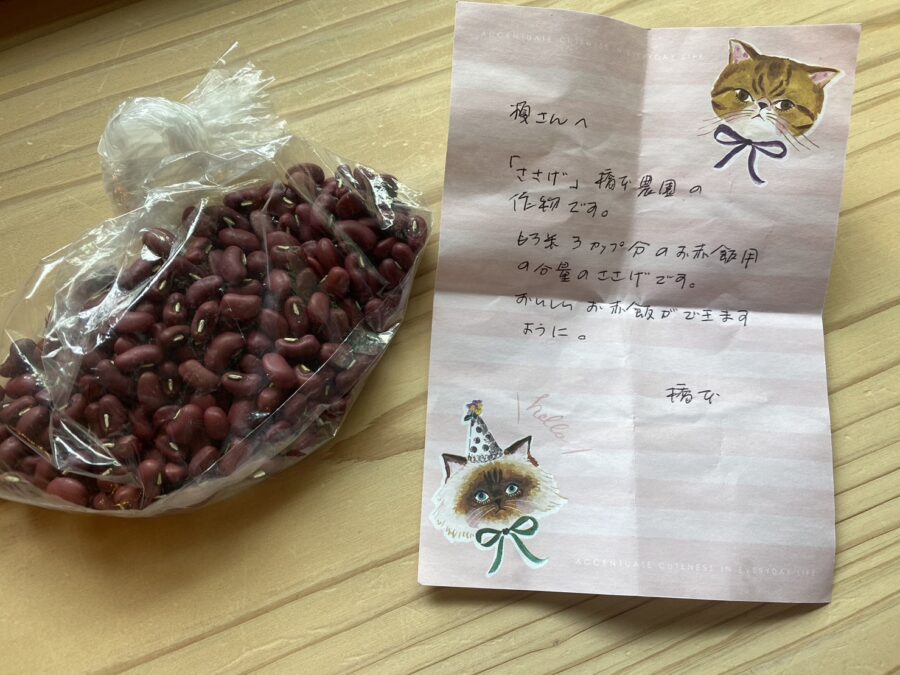 ACCENTUATE CUTENESS IN EVERYDAY LIFE
榎さんへ
「ささげ」橋本農園の
作物です。
もち米3カップ分のお赤飯用
の分量のささげです。
おいしいお赤飯ができます
ように。
橋本
hello
ACCENTUATE CUTENESS IN EVERYDAY LIFE